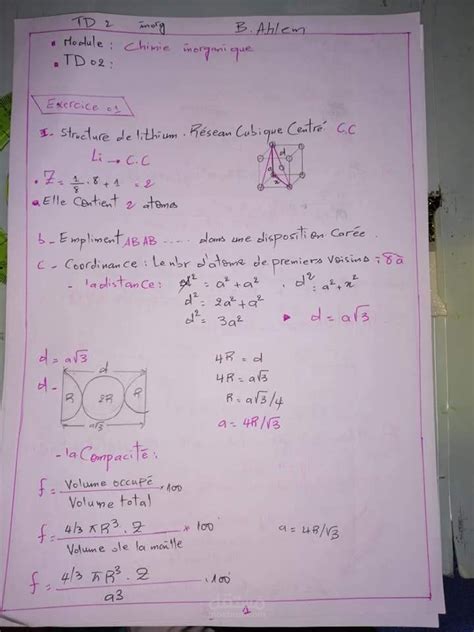 TD 2 inorg B. Ahlem
• Module : Chimie inorganique
• TD 02 :
Exercice 01
I. Structure de lithium. Réseau Cubique Centré C.C
Li → C.C
• Z = 1/8 . 8 + 1 = 2
a. Elle Contient 2 atoms
b - Empliment ABAB ..... dans une disposition Carée.
C - Coordinance : Le nbr d'atome de premiers voisins : 8 à
- la distance : x² = a² + a² , d² = a² + x²
d² = 2a² + a²
d² = 3a² d = a√3
d = a√3 4R = d
d - 4R = a√3
d
R 2R R
a√3
R = a√3/4
a = 4R/√3
- la Compacité :
f = Volume occupé / Volume total * 100
f = 4/3 π R³ . Z / Volume de la maille * 100 a = 4R/√3
f = 4/3 π R³ . Z / a3 . 100
مستقل
mostaql.com
1